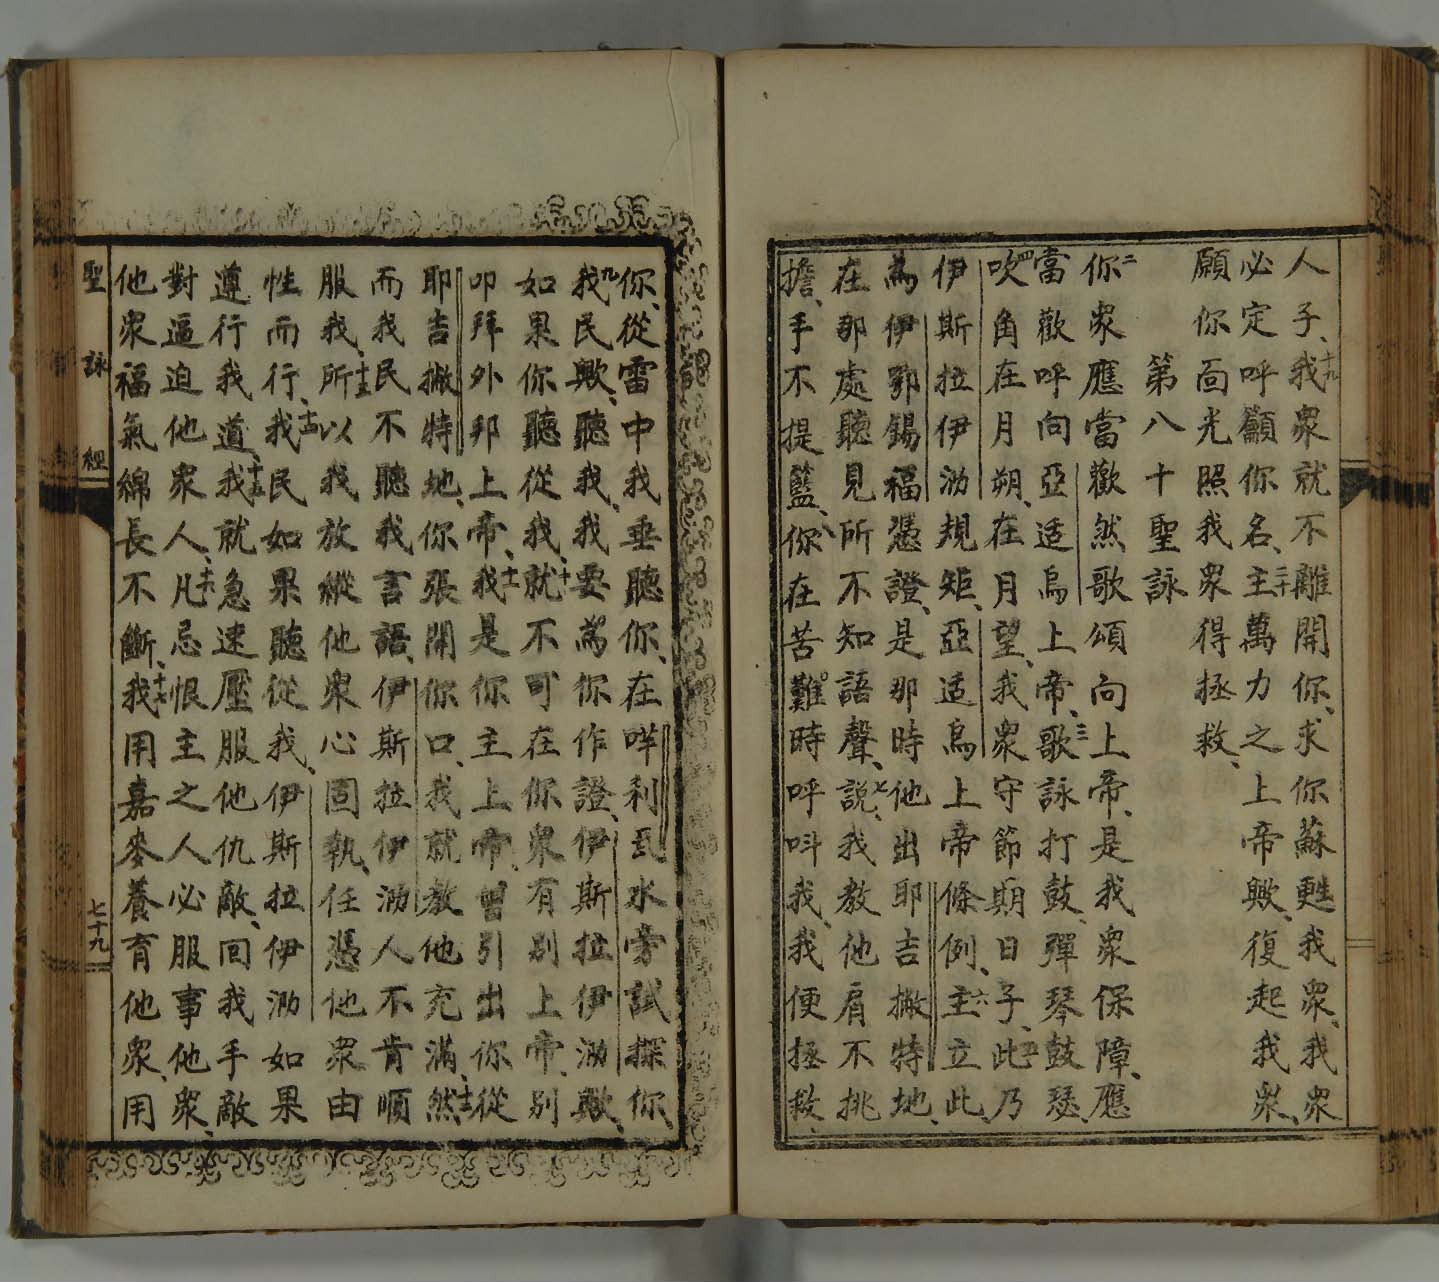 人子、十九我衆就不離開你、求你蘇甦我衆、我衆
必定呼籲你名、二十主萬力之上帝歟、復起我衆、
願你面光照我衆得拯救、
第八十聖詠
二你衆應當歡然歌頌向上帝、是我衆保障、應
當歡呼向亞适烏上帝、三歌詠打鼓、彈琴鼓瑟、
四吹角在月朔、在月望、我衆守節期日子、五此乃
伊斯拉伊泐規矩、亞适烏上帝條例、六主立此、
爲伊鄂錫福憑證、是那時他出耶吉撇特地、
在那處聽見所不知語聲、七説、我教他肩不挑
擔、手不提籃、八你在苦難時呼呌我、我便拯救
你、從雷中我垂聽你、在咩利瓦水旁試探你、
九我民歟、聽我、我要爲你作證、伊斯拉伊泐歟、
如果你聽從我、十就不可在你衆有别上帝、别
叩拜外邦上帝、十一我是你主上帝、曽引出你從
耶吉撇特地、你張開你口、我就教他充滿、十二然
而我民不聽我言語、伊斯拉伊泐人不肯順
服我、十三所以我放縱他衆心固執、任憑他衆由
性而行、十四我民如果聽從我、伊斯拉伊泐如果
遵行我道、十五我就急速壓服他仇敵、回我手敵
對逼迫他衆人、十六凡忌恨主之人必服事他衆、
他衆福氣綿長不斷、十七我用嘉麥養育他衆、用
聖詠經
七十九